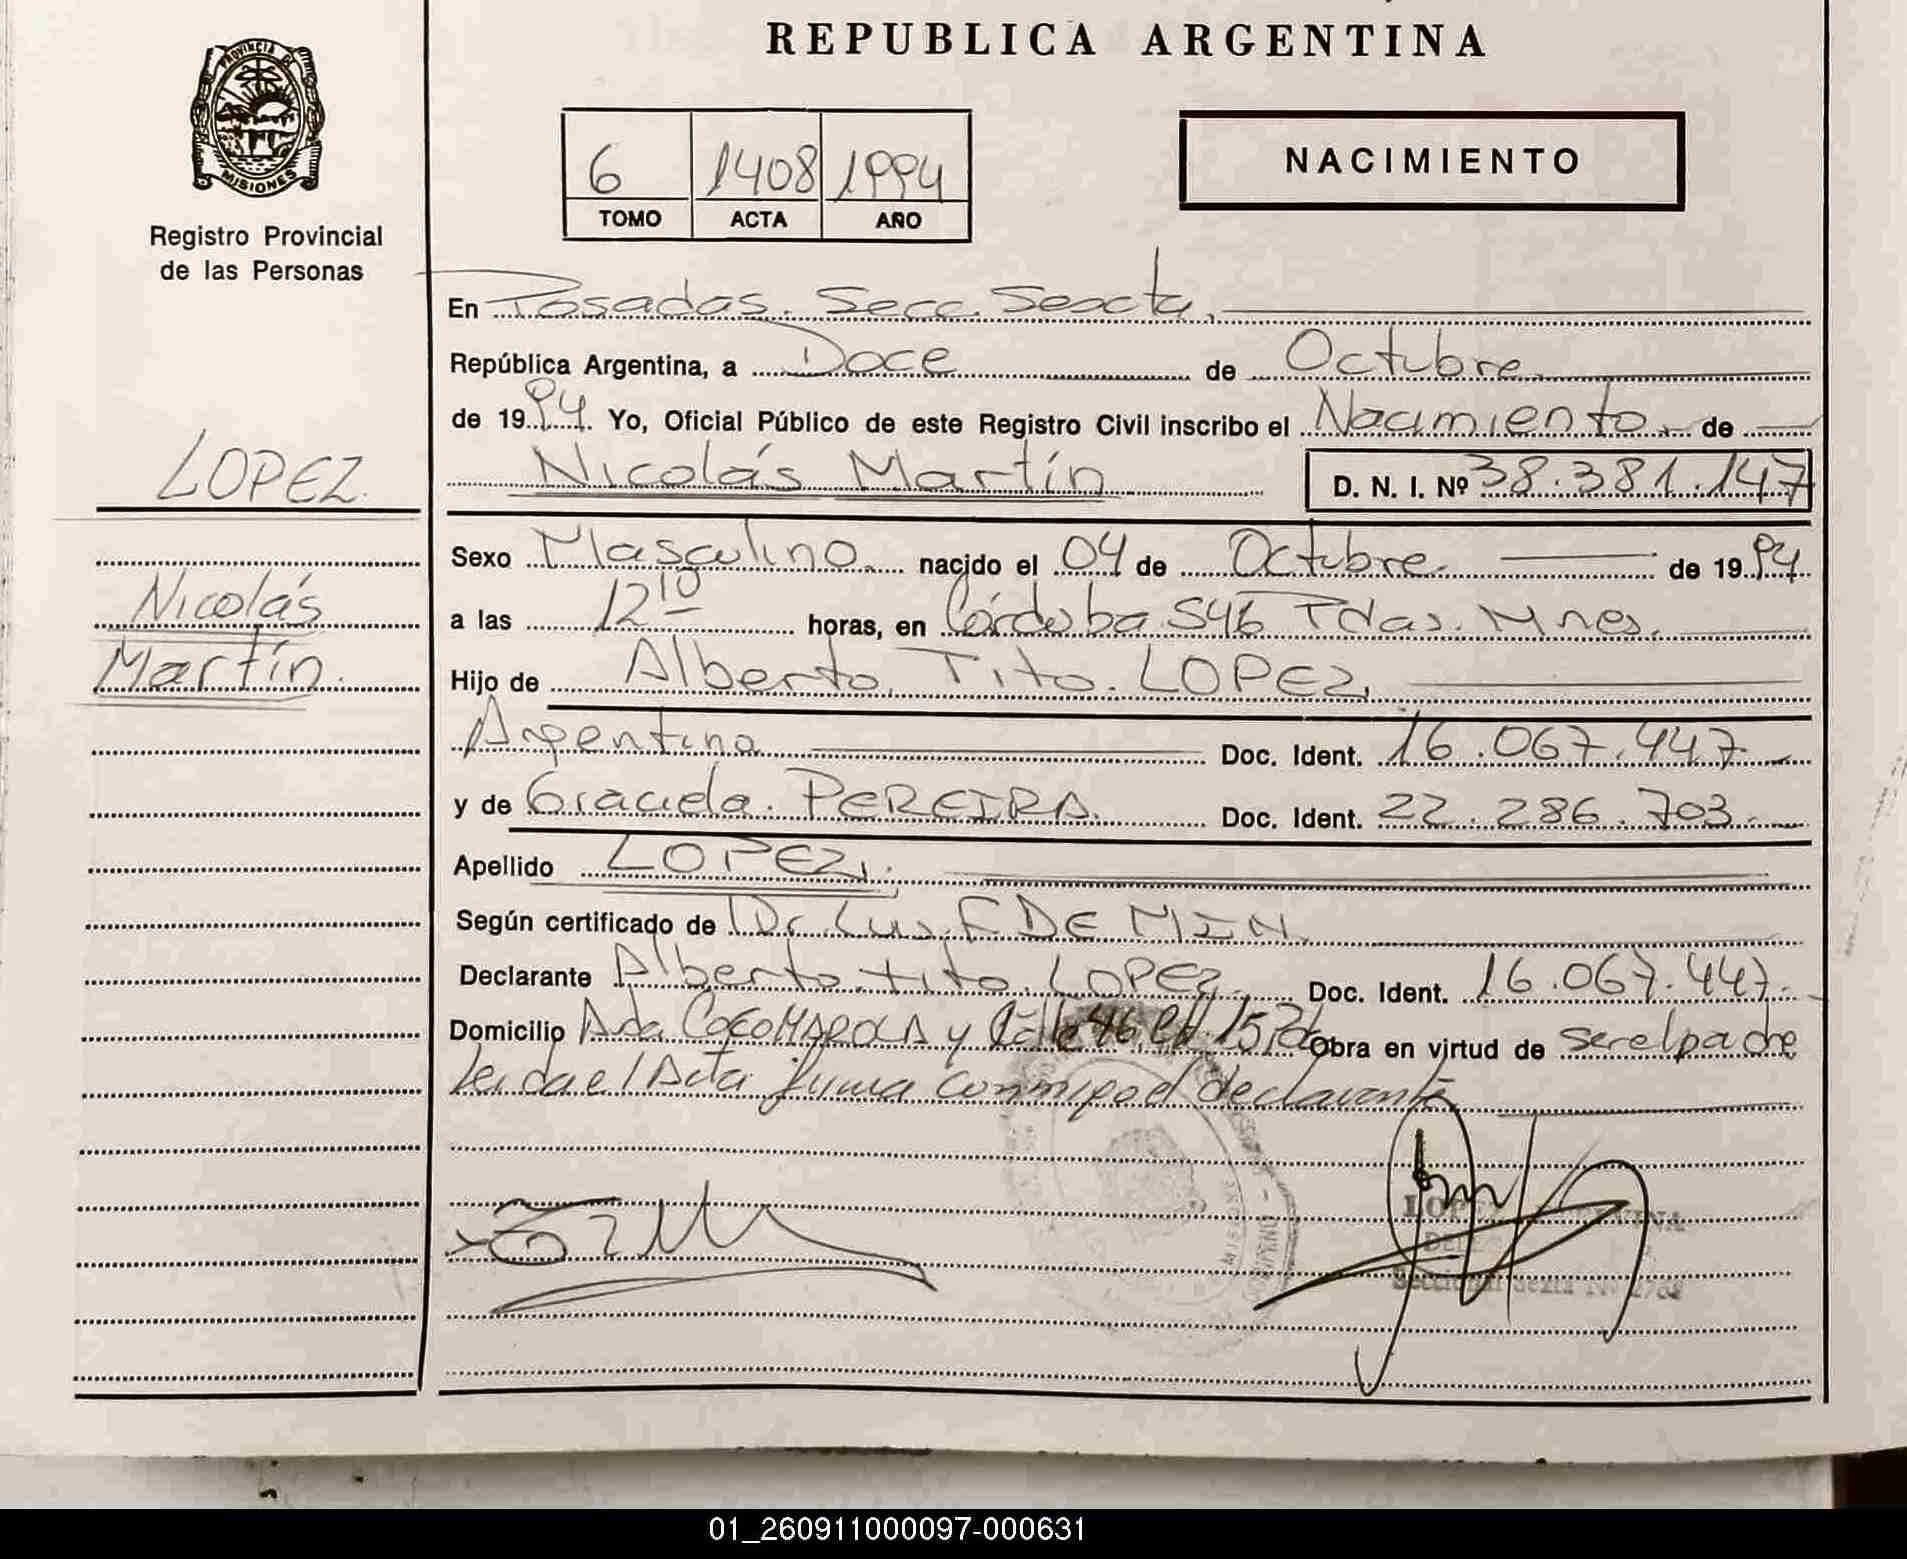 REPUBLICA ARGENTINA
PROVINCIA DE
MISIONES
Registro Provincial
de las Personas
6 1408 1994
TOMO ACTA AÑO
NACIMIENTO
En Posadas. Secc. Sexta.
República Argentina, a Doce de Octubre
de 1994. Yo, Oficial Público de este Registro Civil inscribo el Nacimiento de
LOPEZ
Nicolás Martín D. N. I. Nº 38.381.147
Sexo Masculino nacido el 04 de Octubre de 1994
Nicolás
Martín
a las 12 10 horas, en Córdoba 546 Pdas. Mnes.
Hijo de Alberto Tito LOPEZ,
Argentino Doc. Ident. 16.067.447
y de Graciela PEREIRA Doc. Ident. 22.286.703
Apellido LOPEZ,
Según certificado de Dr. Luis F. DE MIN
Declarante Alberto tito LOPEZ Doc. Ident. 16.067.447
Domicilio Avda COCOMAROLA y Calle 46 Obra en virtud de ser el padre
Leida el Acta firma conmigo el declarante
LOPEZ
Seccional Sexta
01_260911000097-000631